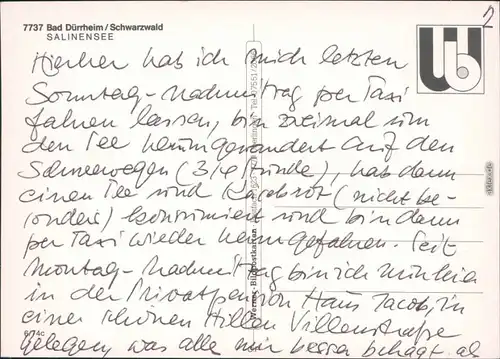 7737 Bad Dürrheim / Schwarzwald
SALINENSEE
Hierher hab ich mich letzten
Sonntag-Nachmittag per Taxi
fahren lassen, bin zweimal um
den See herumgewandert auf den
Schneewegen (3/4 Stunde), hab dann
einen Tee und Käsebrot (nicht be-
sonders) konsumiert und bin dann
per Taxi wieder heimgefahren. Seit
Montag-Nachmittag bin ich
in der Privatpension Haus Jacob, in
einer schönen stillen Villenstraße
gelegen, was alle mir besser behagt. al
Werner-Bildpostkarten
6/74c
ub